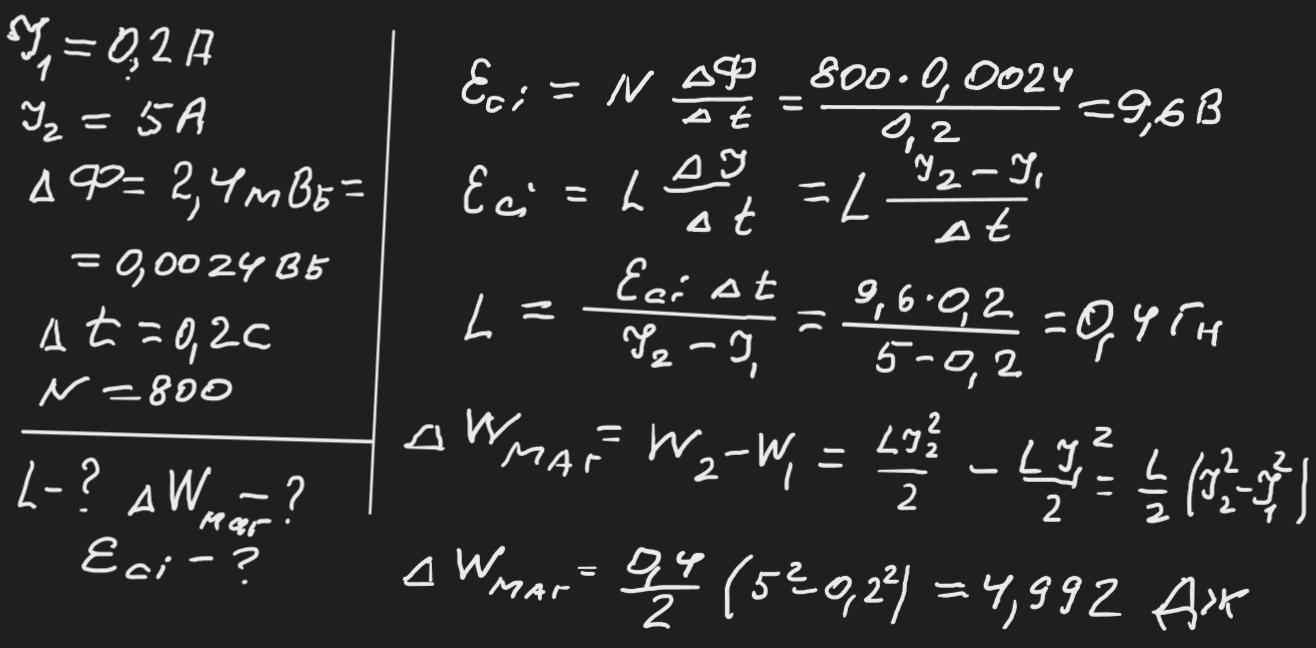 ℐ₁ = 0,2 А
ℐ₂ = 5 А
Δ Ф = 2,4 мВб =
= 0,0024 Вб
Δ t = 0,2 с
N = 800
L - ? Δ Wмаг - ?
ℰci - ?
ℰci = N ΔФ/Δt = 800·0,0024/0,2 = 9,6 В
ℰci = L Δℐ/Δt = L (ℐ₂ - ℐ₁)/Δt
L = ℰci Δt/(ℐ₂ - ℐ₁) = 9,6·0,2/(5 - 0,2) = 0,4 Гн
Δ Wмаг = W₂ - W₁ = Lℐ₂²/2 - Lℐ₁²/2 = L/2 (ℐ₂² - ℐ₁²)
Δ Wмаг = 0,4/2 (5² - 0,2²) = 4,992 Дж